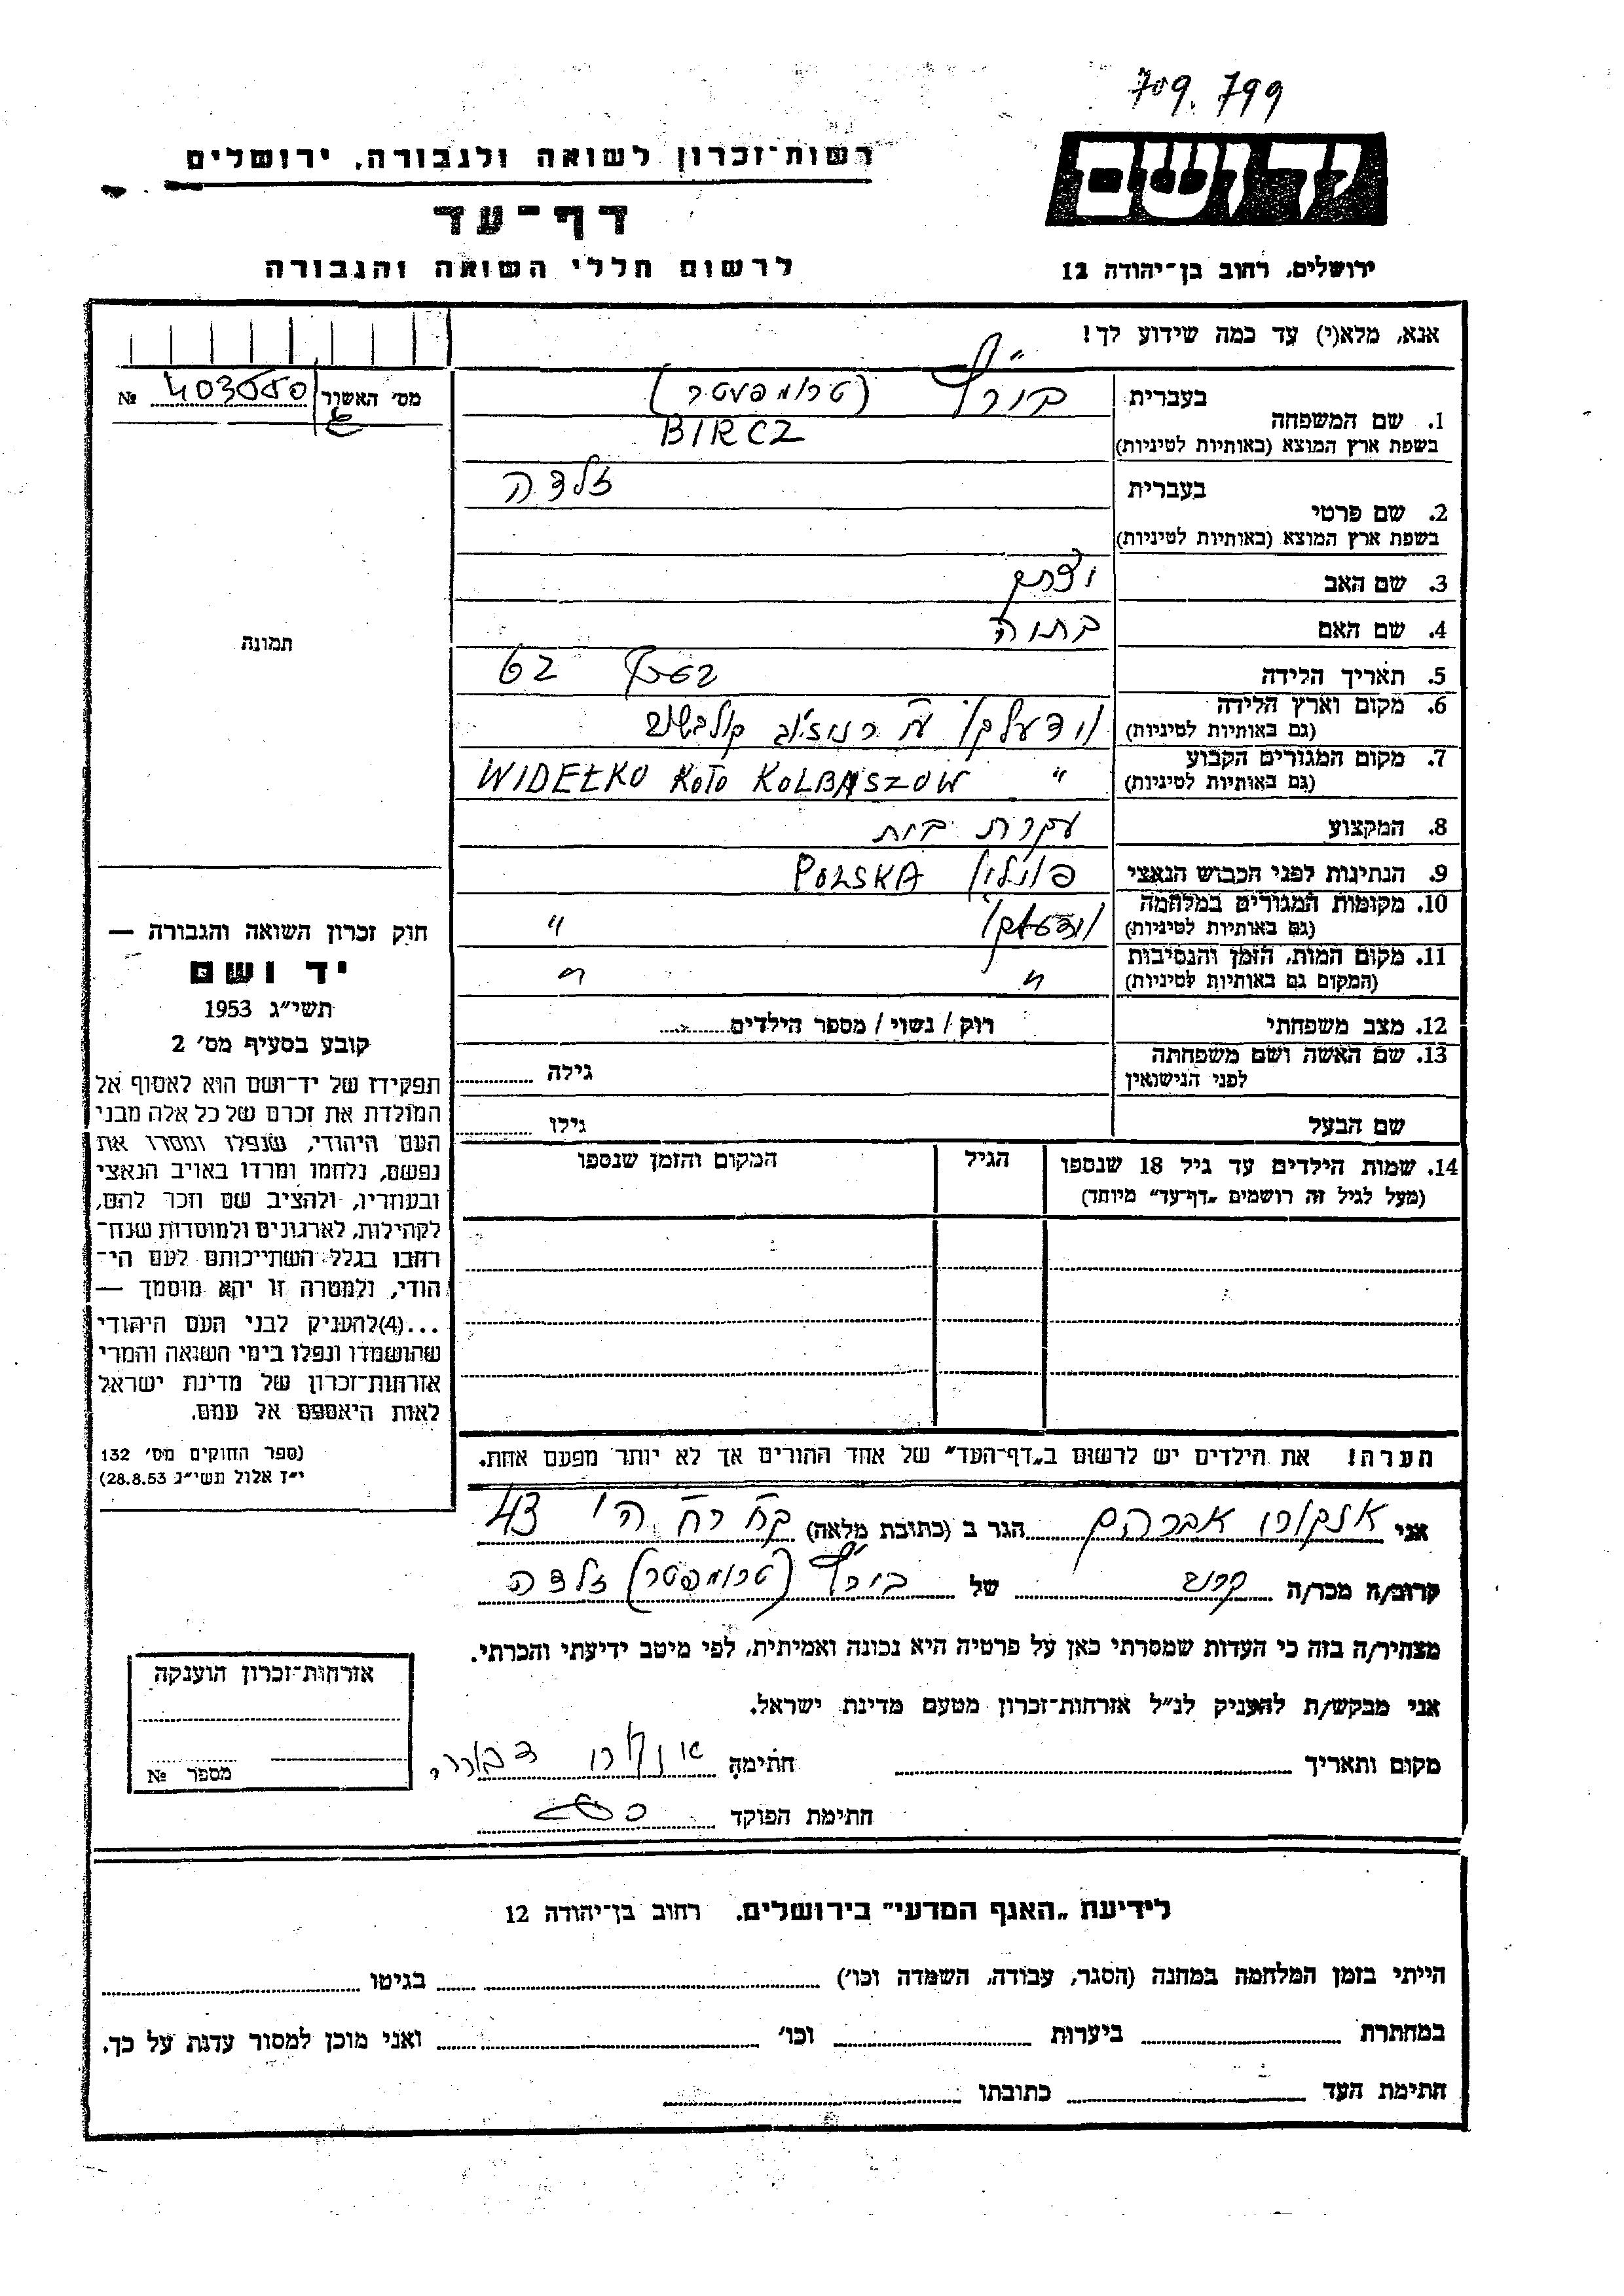 709.799
יד ושם
רשות־זכרון לשואה ולגבורה, ירושלים
דף־עד
ירושלים, רחוב בן־יהודה 12
לרשום חללי השואה והגבורה
אנא, מלא(י) עד כמה שידוע לך!
מס׳ האשור № 403550
1. שם המשפחה
בעברית (טרומפטר)
בשפת ארץ המוצא (באותיות לטיניות) BIRCZ
2. שם פרטי
בעברית זלדה
בשפת ארץ המוצא (באותיות לטיניות)
3. שם האב
4. שם האם
5. תאריך הלידה 62
6. מקום וארץ הלידה
(גם באותיות לטיניות)
7. מקום המגורים הקבוע
(גם באותיות לטיניות) " WIDEŁKO KOŁO KOLBASZOW
8. המקצוע עקרת בית
9. הנתינות לפני הכבוש הנאצי פולין POLSKA
10. מקומות המגורים במלחמה
(גם באותיות לטיניות) "
11. מקום המות, הזמן והנסיבות
(המקום גם באותיות לטיניות) " "
12. מצב משפחתי רוק / נשוי / מספר הילדים
13. שם האשה ושם משפחתה
לפני הנישואין גילה
שם הבעל גילו
14. שמות הילדים עד גיל 18 שנספו
(מעל לגיל זה רושמים „דף־עד” מיוחד)
הגיל
המקום והזמן שנספו
תמונה
חוק זכרון השואה והגבורה —
יד ושם
תשי״ג 1953
קובע בסעיף מס׳ 2
תפקידו של יד־ושם הוא לאסוף אל
המולדת את זכרם של כל אלה מבני
העם היהודי, שנפלו ומסרו את
נפשם, נלחמו ומרדו באויב הנאצי
ובעוזריו, ולהציב שם וזכר להם,
לקהילות, לארגונים ולמוסדות שנח־
רחבו בגלל השתייכותם לעם הי־
הודי, ולמטרה זו יהא מוסמך —
...(4)להעניק לבני העם היהודי
שהושמדו ונפלו בימי השואה והמרי
אזרחות־זכרון של מדינת ישראל
לאות היאספם אל עמם.
(ספר החוקים מס׳ 132
י״ז אלול תשי״ג 28.8.53)
הערה! את הילדים יש לרשום ב„דף־העד” של אחד ההורים אך לא יותר מפעם אחת.
אני אברהם הגר ב (כתובת מלאה) 43
קרוב/ה מכר/ה קרוב של (טרומפטר) זלדה
מצהיר/ה בזה כי העדות שמסרתי כאן על פרטיה היא נכונה ואמיתית, לפי מיטב ידיעתי והכרתי.
אני מבקש/ת להעניק לנ״ל אזרחות־זכרון מטעם מדינת ישראל.
מקום ותאריך חתימה
חתימת הפוקד
אזרחות־זכרון הוענקה
מספר №
לידיעת „האגף המדעי” בירושלים. רחוב בן־יהודה 12
הייתי בזמן המלחמה במחנה (הסגר, עבודה, השמדה וכו׳) בגיטו
במחתרת ביערות וכו׳ ואני מוכן למסור עדות על כך.
חתימת העד כתובתו